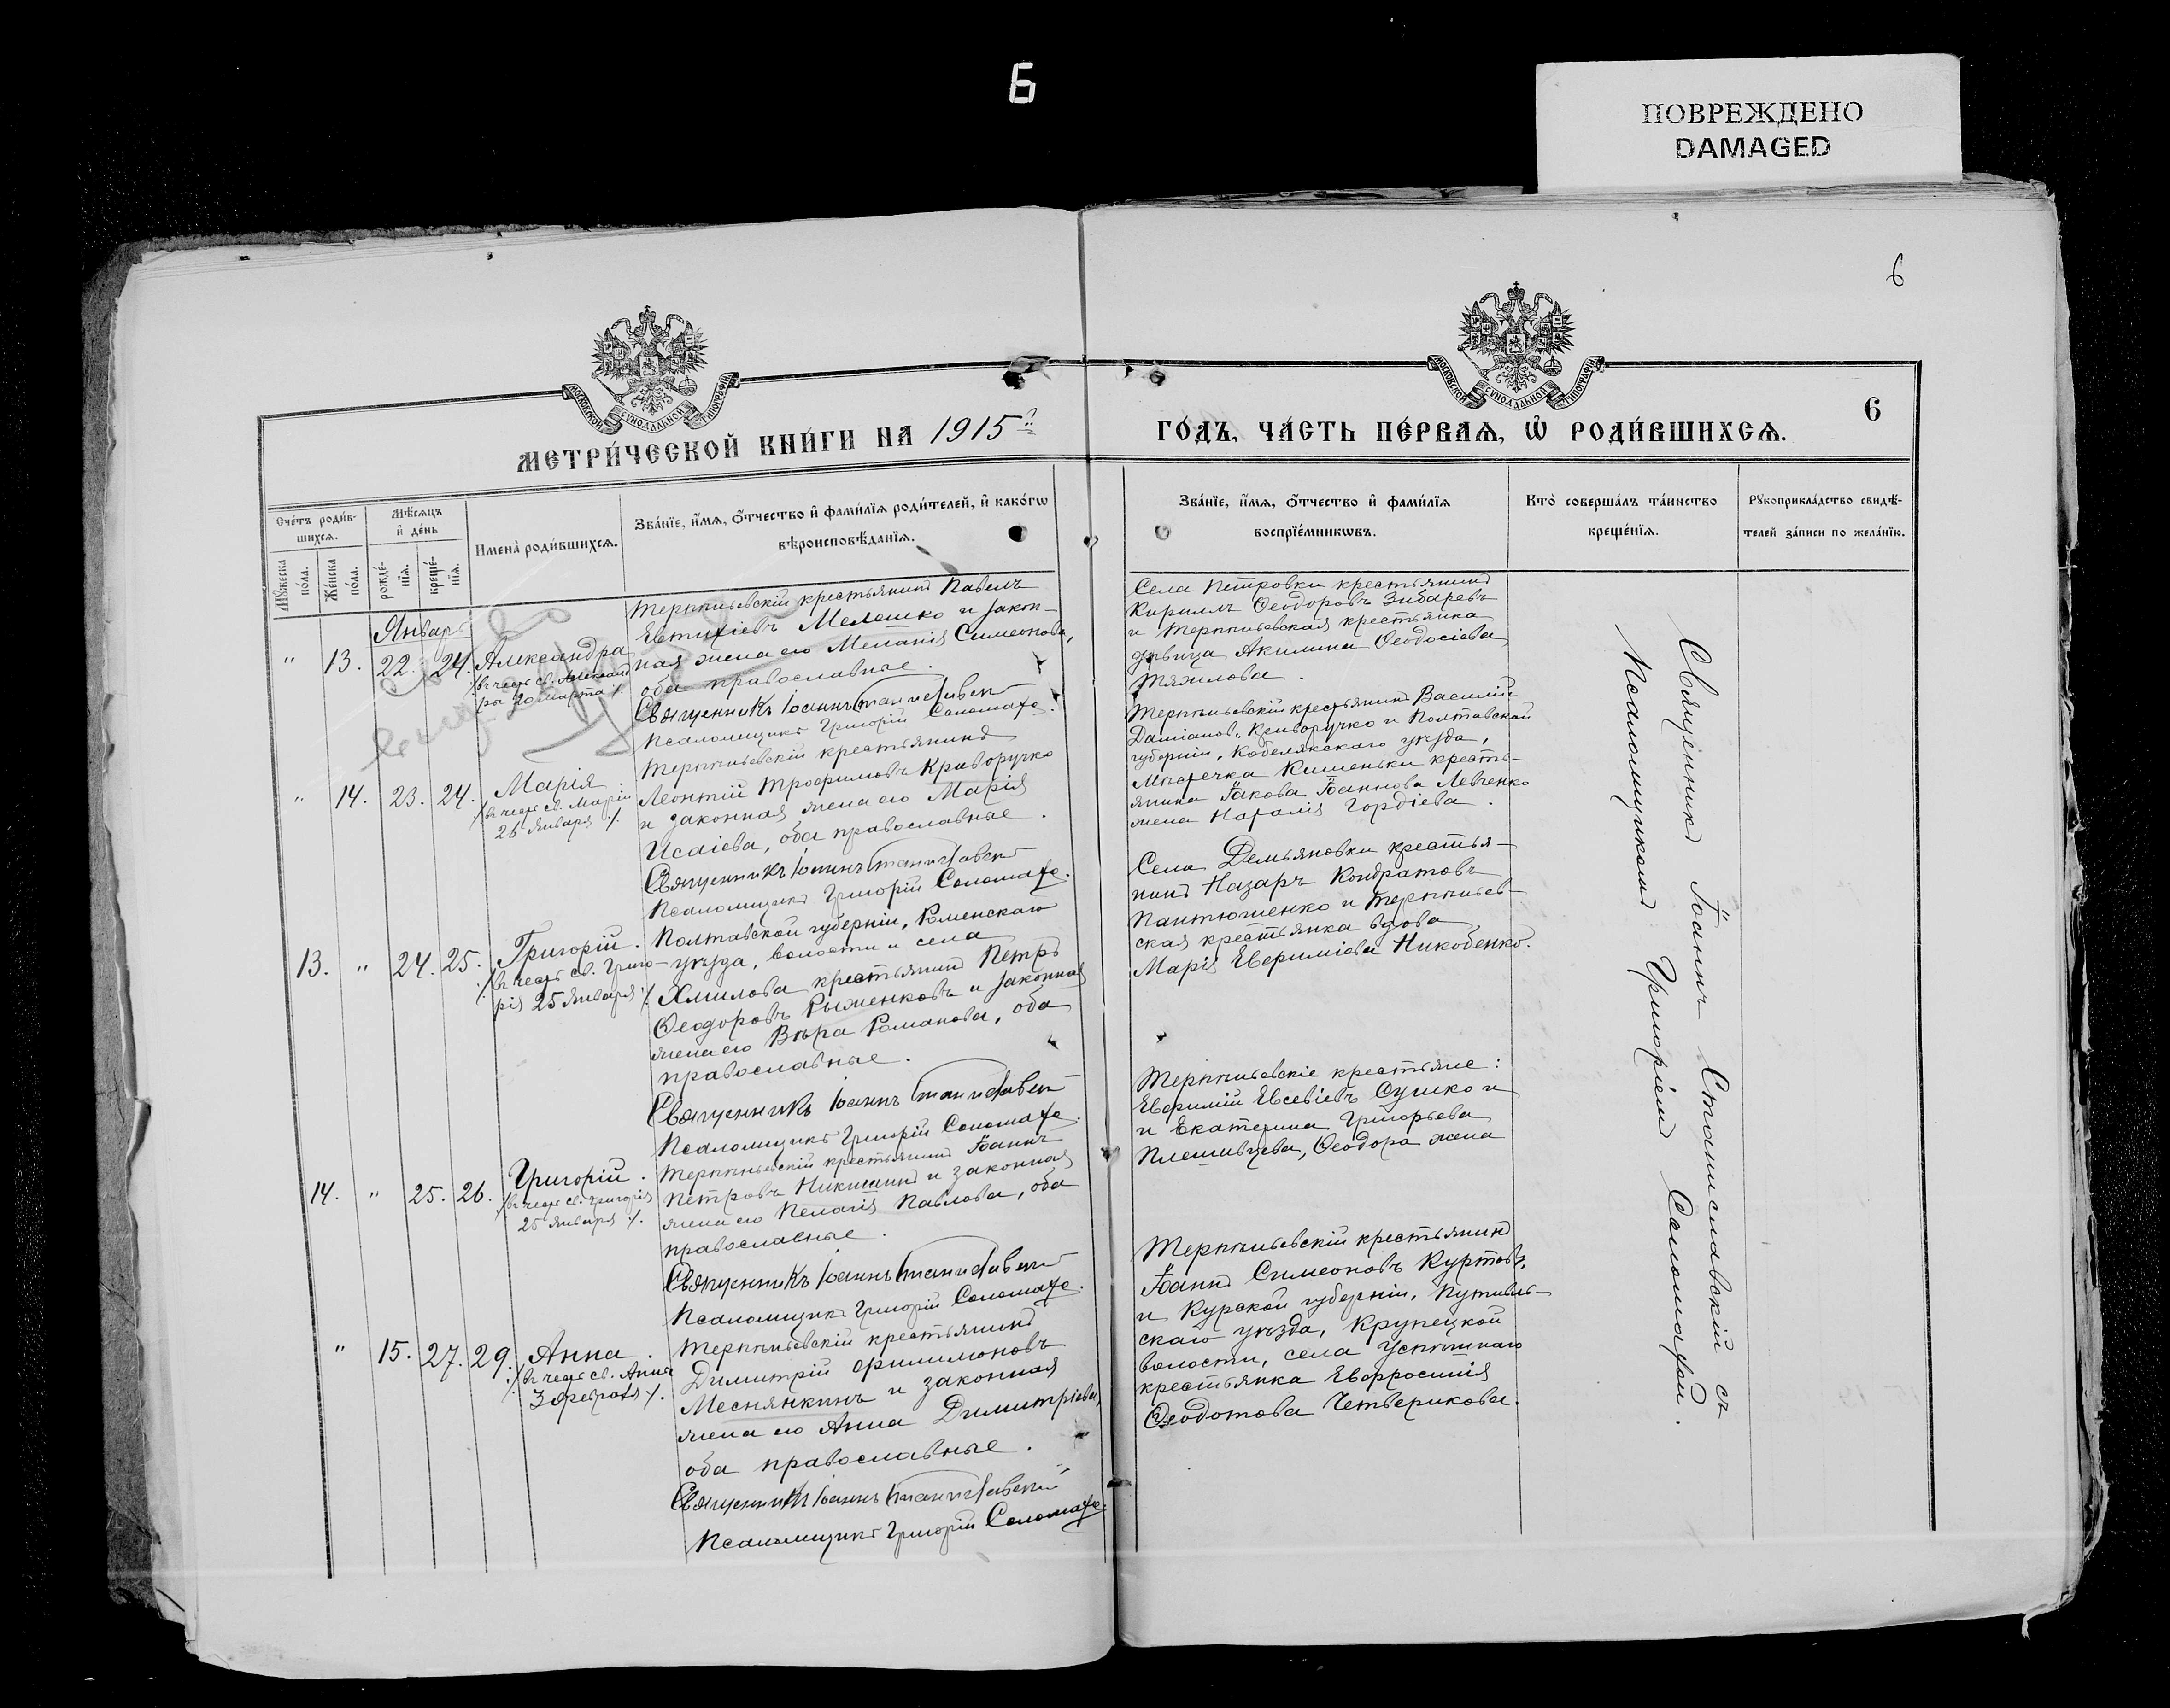 6
ПОВРЕЖДЕНО
DAMAGED
6
МОСКОВСКОЙ СѴНОДАЛЬНОЙ ТИПОГРАФІИ
МОСКОВСКОЙ СѴНОДАЛЬНОЙ ТИПОГРАФІИ
МЕТРИ́ЧЕСКОЙ КНИ́ГИ НА 1915
ГО́ДЪ, ЧА́СТЬ ПЕ́РВАѦ, Ѡ҆ РОДИ́ВШИХСѦ.
6
Сче́тъ роди́в-
шихсѧ.
Мꙋжеска по́ла.
Же́нска по́ла.
Мѣ́сѧцъ
и҆ де́нь
рожде́-
нїѧ.
креще́-
нїѧ.
Имена̀ роди́вшихсѧ.
Зва́нїе, и҆́мѧ, ѻ҆́тчество и҆ фами́лїѧ роди́телей, и҆ како́гѡ
вѣроисповѣ́данїѧ.
Зва́нїе, и҆́мѧ, ѻ҆́тчество и҆ фами́лїѧ
воспрїе́мникѡвъ.
Кто̀ соверша́лъ та́инство
креще́нїѧ.
Рꙋкоприкла́дство свидѣ́-
телей за́писи по жела́нїю.
Январь
" 13. 22. 24. Александра
/въ честь св. Александ
ры 20 марта/.
Терпѣніевскій крестьянинъ Павелъ
Евтихіевъ Мелешко и закон-
ная жена его Меланія Симеонова,
оба православные.
Священникъ Іоаннъ Станиславскій
Псаломщикъ Григорій Соломаха.
Села Петровки крестьянинъ
Кириллъ Ѳеодоровъ Зибаревъ
и Терпѣніевская крестьянка
дѣвица Акилина Ѳеодосіева
Тяжлова.
" 14. 23. 24. Марія
/въ честь св. Маріи
26 Января/.
Терпѣніевскій крестьянинъ
Леонтій Трофимовъ Криворучко
и законная жена его Марія
Исаіева, оба православные.
Священникъ Іоаннъ Станиславскій
Псаломщикъ Григорій Соломаха.
Терпѣніевскій крестьянинъ Василій
Даміановъ Криворучко и Полтавской
губерніи, Кобелякскаго уѣзда,
Мѣстечка Кишеньки кресть-
янина Іакова Іоаннова Левченко
жена Наталія Гордіева.
13. " 24. 25. Григорій.
/въ честь св. Григо-
рія 25 Января/.
Полтавской губерніи, Роменскаго
уѣзда, волости и села
Хмилова крестьянинъ Петръ
Ѳеодоровъ Рыженковъ и законная
жена его Вѣра Романова, оба
православные.
Священникъ Іоаннъ Станиславскій
Псаломщикъ Григорій Соломаха.
Села Демьяновки крестья-
нинъ Назаръ Кондратовъ
Пантюшенко и Терпѣніев-
ская крестьянка вдова
Марія Евфиміева Никобенко.
14. " 25. 26. Григорій.
/въ честь св. Григорія
25 Января/.
Терпѣніевскій крестьянинъ Іоаннъ
Петровъ Никишинъ и законная
жена его Пелагія Павлова, оба
православные.
Священникъ Іоаннъ Станиславскій
Псаломщикъ Григорій Соломаха.
Терпѣніевскіе крестьяне:
Евфимій Евсевіевъ Сушко и
и Екатерина Григорьева
Плешивцева, Ѳеодора жена
" 15. 27. 29. Анна.
/въ честь св. Анны
3 февраля/.
Терпѣніевскій крестьянинъ
Димитрій Филимоновъ
Меснянкинъ и законная
жена его Анна Димитріева,
оба православные.
Священникъ Іоаннъ Станиславскій
Псаломщикъ Григорій Соломаха.
Терпѣніевскій крестьянинъ
Іоаннъ Симеоновъ Куртовъ,
и Курской губерніи, Путивль-
скаго уѣзда, Крупецкой
волости, села Успѣшнаго
крестьянка Евфросинія
Ѳеодотова Четверикова.
Священникъ Іоаннъ Станиславскій съ
Псаломщикомъ Григоріемъ Соломахой.